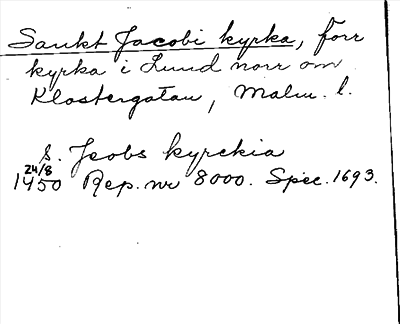 Sankt Jacobi kyrka, förr
kyrka i Lund norr om
Klostergatan, Malm. l.
S. Jeobs kyrckia
24/8
1450 Rep. nr 8000. Spec. 1693.